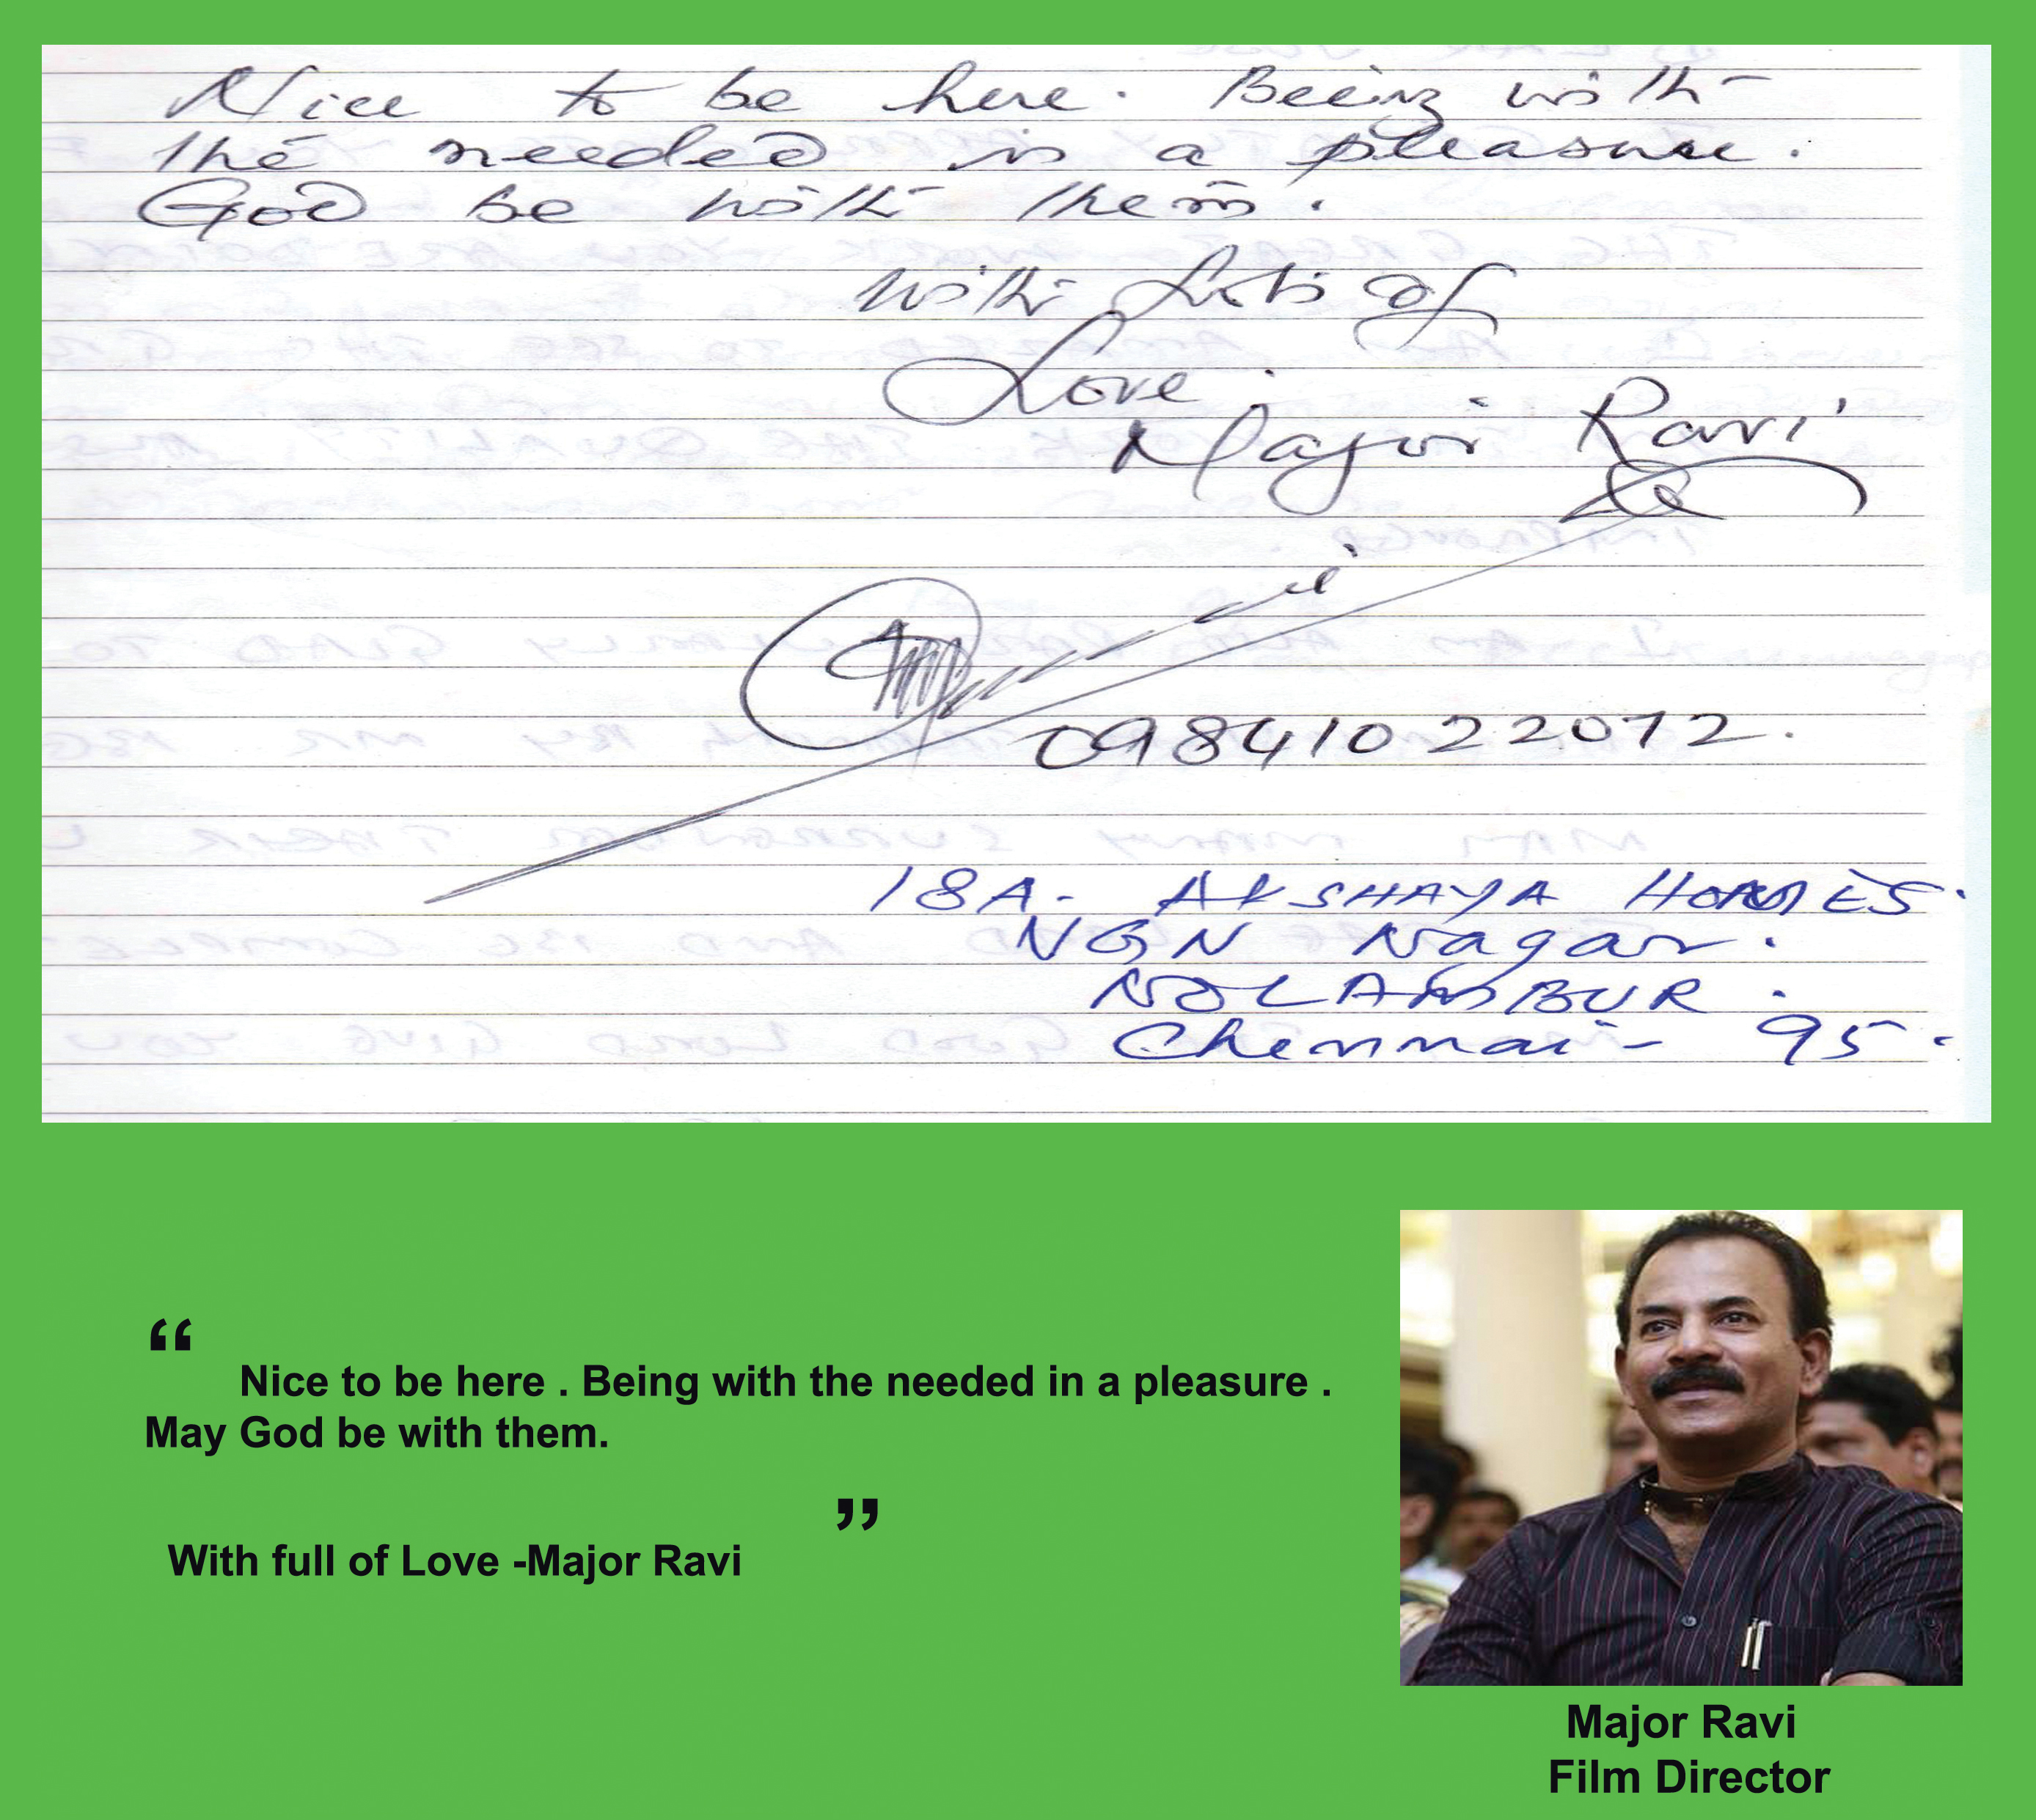 Nice to be here. Being with
the needed is a pleasure.
God be with them.
with Lots of
Love.
Major Ravi
09841022072.
18A. AKSHAYA HOMES.
NGN Nagar.
NOLAMBUR.
Chennai - 95.
“
Nice to be here . Being with the needed in a pleasure .
May God be with them.
”
With full of Love -Major Ravi
Major Ravi
Film Director